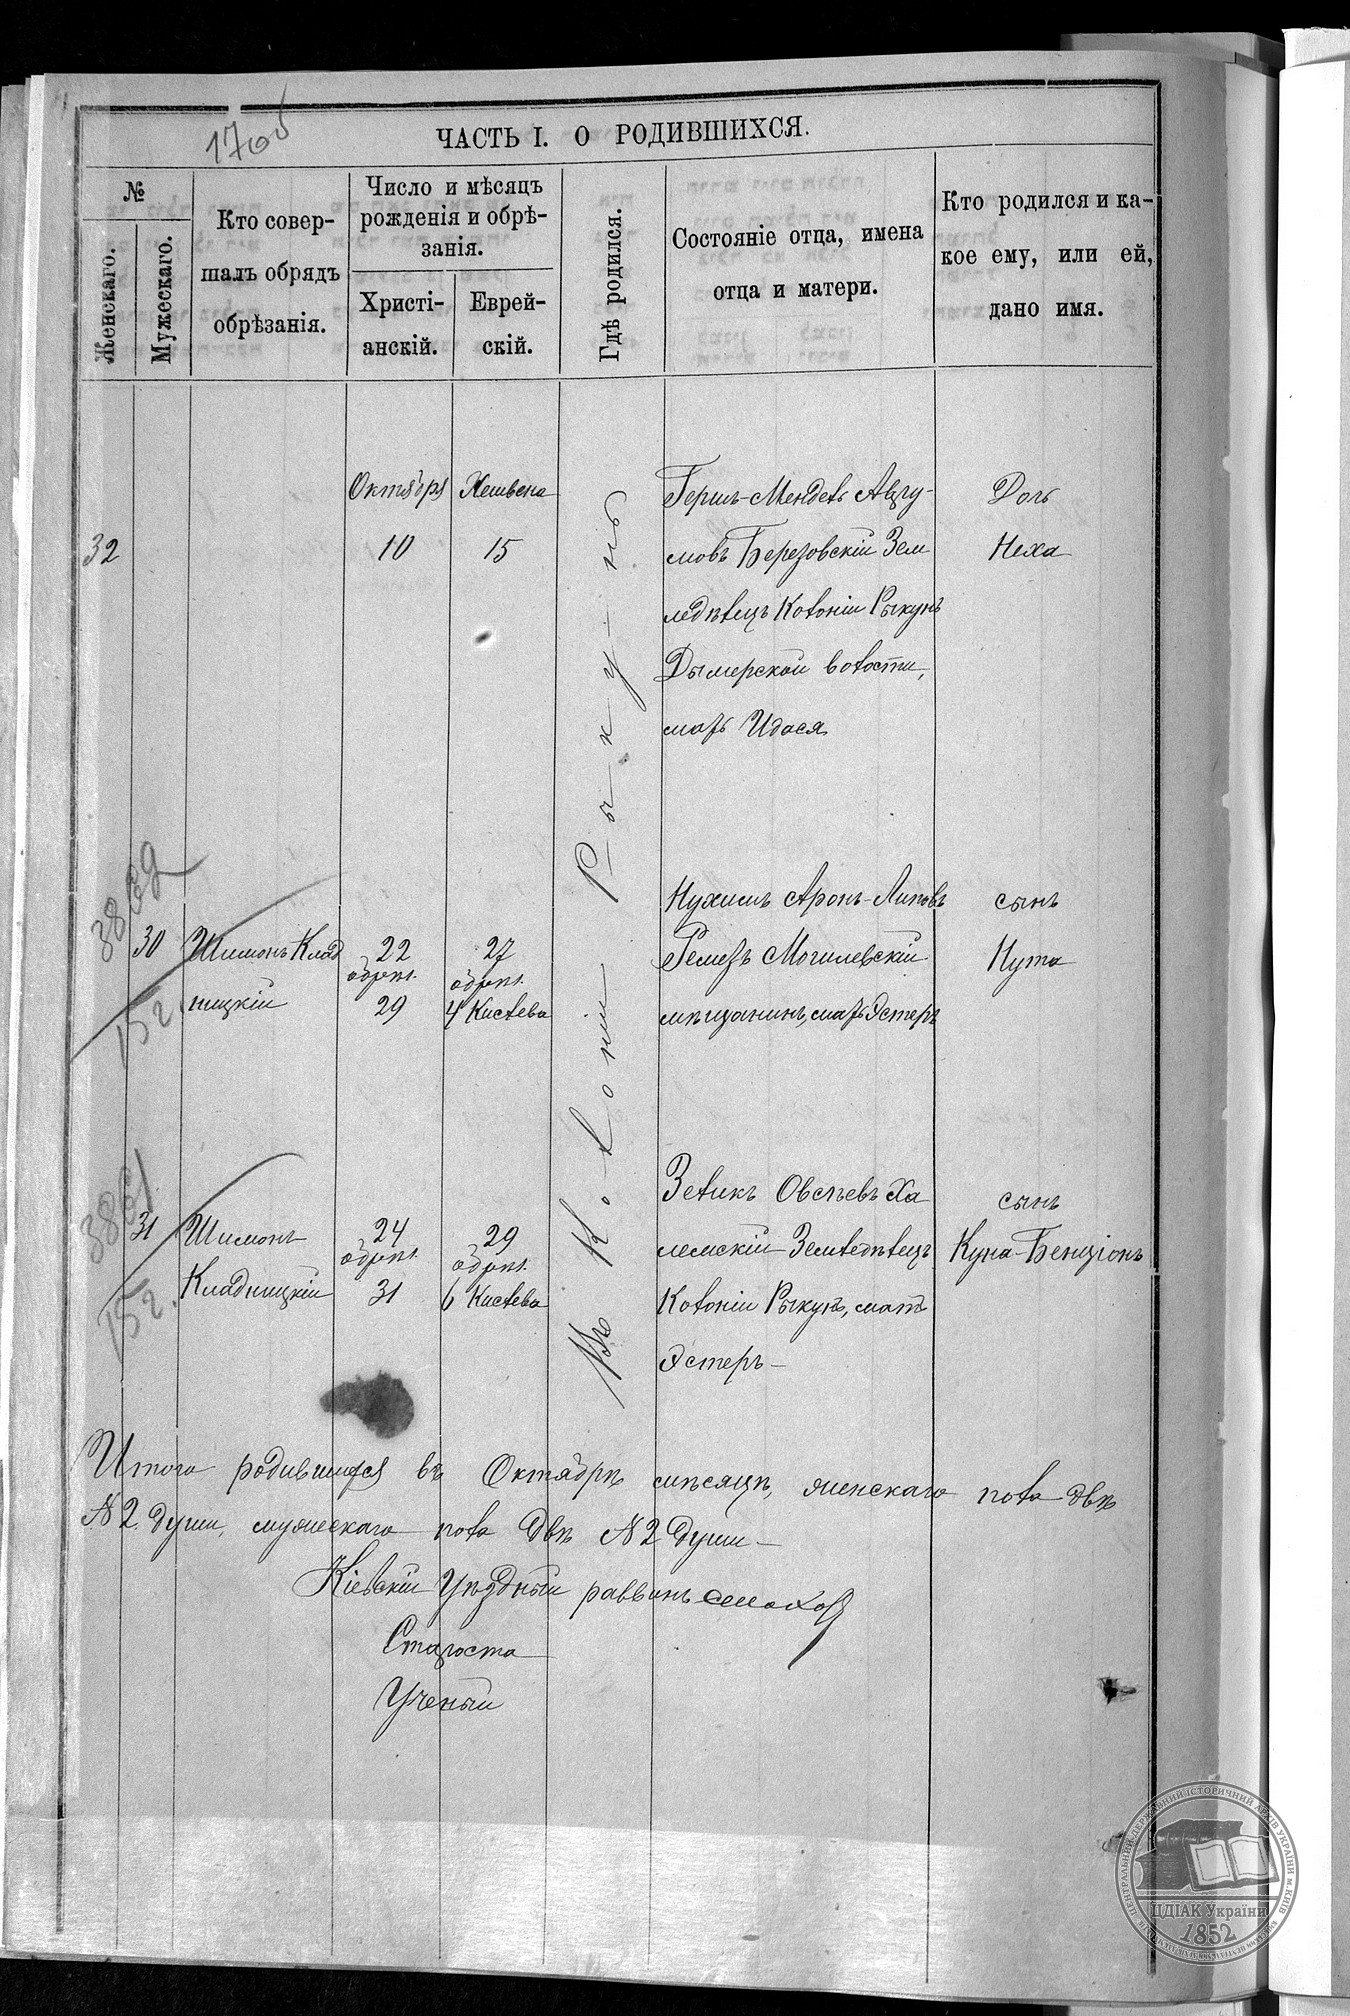 170
ЧАСТЬ I. О РОДИВШИХСЯ.
№
Женскаго.
Мужескаго.
Кто совер-
шалъ обрядъ
обрѣзанія.
Число и мѣсяцъ
рожденія и обрѣ-
занія.
Христі-
анскій.
Еврей-
скій.
Гдѣ родился.
Состояніе отца, имена
отца и матери.
Кто родился и ка-
кое ему, или ей,
дано имя.
Въ Колоніи Рыкунь
32
Октября
10
Хешвена
15
Гершъ-Мендель
Березовскій Зем
ледѣлецъ Колоніи Рыкунь
Дымерской волости,
мать Идася
Дочь
Неха
30
Шимонъ Клад
ницкій
22
обрѣз.
29
27
обрѣз.
4 Кислева
Нухимъ Аронъ-Липовъ
Ремезъ Могилевскій
мѣщанинъ, мать Эстеръ
сынъ
Нута
152.
31
Шимонъ
Кладницкій
24
обрѣз.
31
29
обрѣз.
6 Кислева
Зеликъ Овсѣевъ Ха
лемскій Земледѣлецъ
Колоніи Рыкунь, мать
Эстеръ
сынъ
Куна-Бенціонъ
152.
Итого родившихся въ Октябрѣ мѣсяцѣ, женскаго пола двѣ
№ 2. души, мужескаго пола двѣ № 2 души
Кіевскій Уѣздный раввинъ
Староста
Ученый
ЦЕНТРАЛЬНИЙ ДЕРЖАВНИЙ ІСТОРИЧНИЙ АРХІВ УКРАЇНИ м.КИЇВ
ЦДІАК України
1852